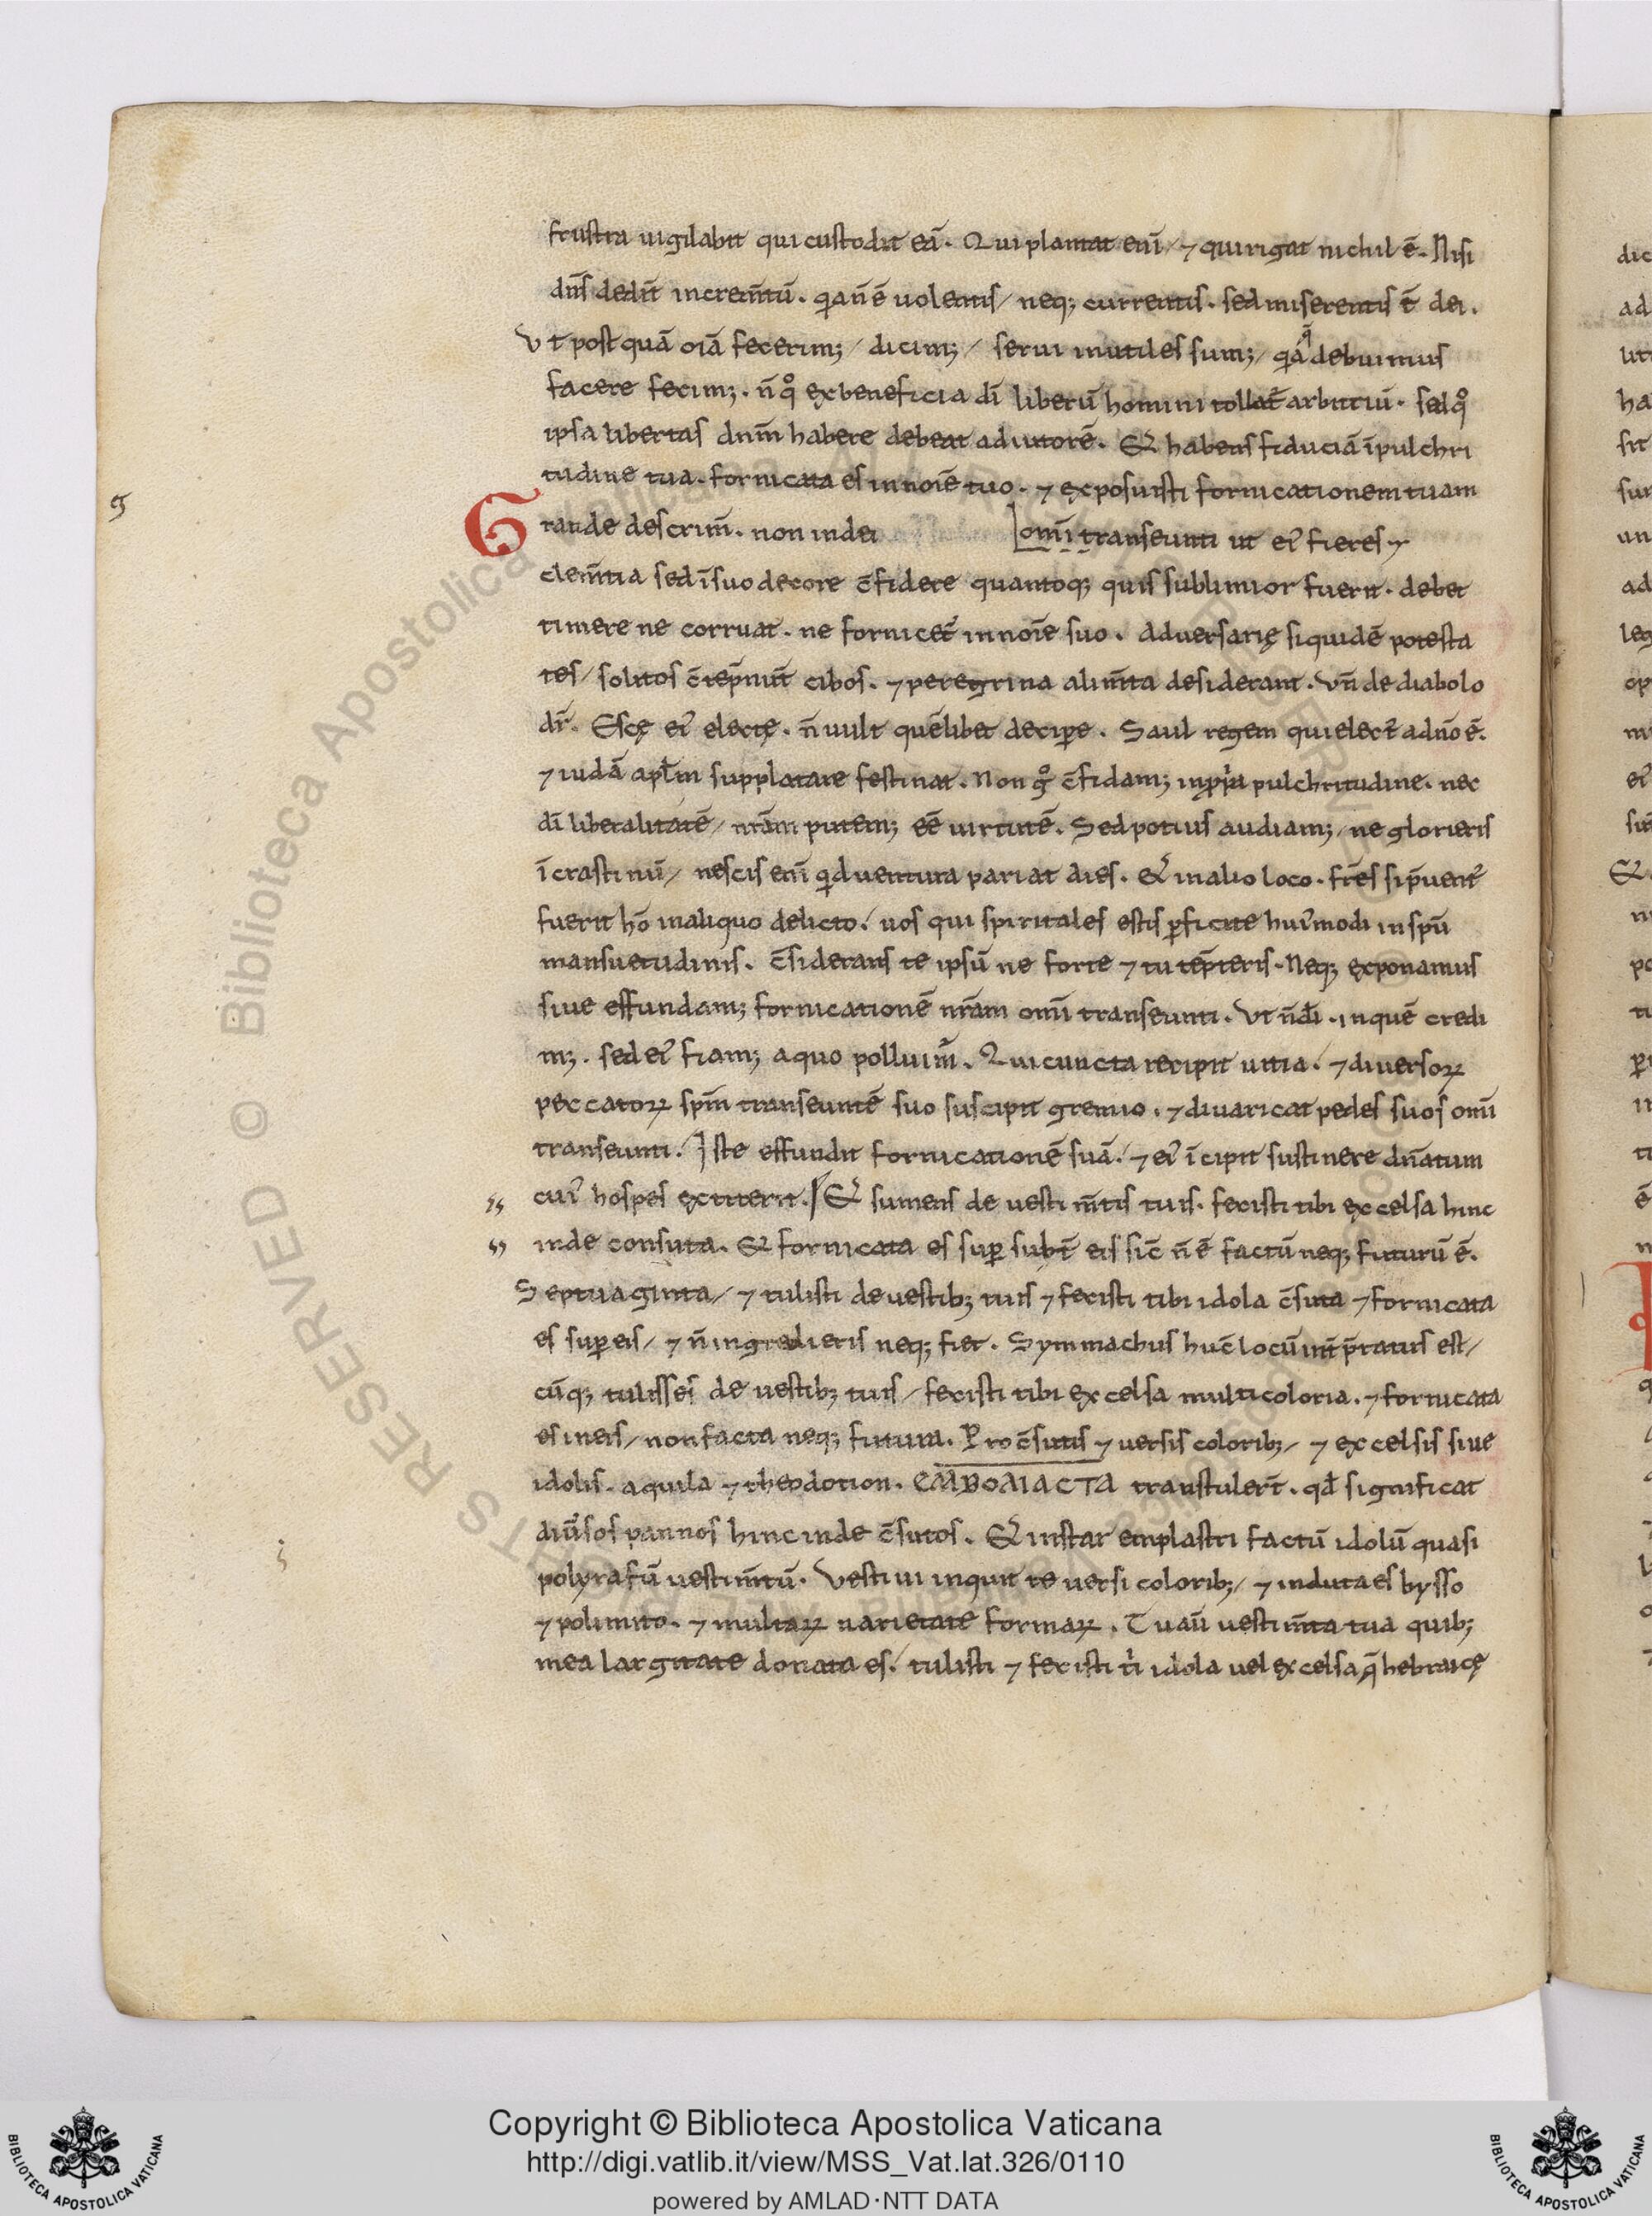 frustra uigilabit qui custodit eā. Qui plantat eni᷈ / ⁊ qui rigat nichil ē. Nisi
dn̄s dedit̄ increm̄tū. q̓a n̄ ē uolentis / neq; currentis. sed miserentis ē dei.
Ut post quā om̄ia fecerim; / dicim; / serui inutiles sum; / q̄ debuimus
facere fecim;. n̄ qͦ ex beneficia dī liberū homini tollat̄ arbitriū. sed qͦ
ipsa libertas dn̄m habere debeat adiutorē. Et habens fiduciā ī pulchri
tudine tua. fornicata es in noīe tuo. ⁊ exposuisti fornicationem tuam
omī transeunti ut ei᷒ fieres ⁊
Grande descrim̄. non in dei
clem̄tia sed ī suo decore c̄fidere quantoq; quis sublimior fuerit. debet
timere ne corruat. ne fornicet᷒ in noīe suo. Aduersarię siquidē potesta
tes / solitos c̄tēpnunt cibos. ⁊ peregrina alim̄ta desiderant. Vn̄ de diabolo
dr̄. Escę ei᷒ electę. n̄ uult quēlibet decipe. Saul regem qui elect᷒ a dn̄o ē.
⁊ iudā apl̄m supplatare festinat. Non gͦ c̄fidam; in p̱p̓a pulchritudine. nec
dī liberalitatē / nr̄am putem; eē uirtutē. Sed potius audiam; / ne glorieris
ī crastinū / nescis eni᷈ qid uentura pariat dies. Et in alio loco. fr̄es si p̄uent᷒
fuerit hō in aliquo delicto / uos qui spiritales estis p̱ficite hui᷒modi in spū
mansuetudinis. c̄siderans te ipsū ne forte ⁊ tu tēpteris. Neq; exponamus
siue effundam; fornicationē nr̄am omī transeunti. Ut n̄ dī. in quē credi
m;. sed ei᷒ fiam; a quo polluim᷒. Qui cuncta recipit uitia / ⁊ diuersoꝝ
peccatoꝝ spm̄ transeuntē suo suscipit gremio. ⁊ diuaricat pedes suos omī
transeunti / Iste effundit fornicationē suā / ⁊ ei᷒ īcipit sustinere dn̄atum
cui᷒ hospes extiterit. / Et sumens de uestim̄tis tuis. fecisti tibi excelsa hinc
inde consuta. Et fornicata es sup̱ subt̄ eis sic̄ n̄ ē factū neq; futurū ē.
Septuaginta / ⁊ tulisti de uestib; tuis ⁊ fecisti tibi idola c̄suta ⁊ fornicata
es sup̱ eis / ⁊ n̄ ingredieris neq; fiet. Symmachus huc̄ locū int̄p̄tatus est /
cūq; tulisses de uestib; tuis / fecisti tibi excelsa multicoloria. ⁊ fornicata
es in eis / non facta neq; futura. Pro c̄sutis ⁊ uersis colorib; / ⁊ excelsis siue
idolis. aquila ⁊ theodotion. ЄΜΒΟΛΙΑCΤΑ transtuler̄t. qd̄ significat
diuͥsos pannos hinc inde c̄sutos. Et instar emplastri factū idolū quasi
polyrafū uestim̄tū. Vestiui inquit te uersi colorib; / ⁊ induta es bysso
⁊ polimito. ⁊ multaꝝ uarietate formaꝝ. Tu aū uestim̄ta tua quib;
mea largitate donata es / tulisti ⁊ fecisti ti᷈ idola uel excelsa q̄ hebraicę
Copyright © Biblioteca Apostolica Vaticana
http://digi.vatlib.it/view/MSS_Vat.lat.326/0110
powered by AMLAD·NTT DATA